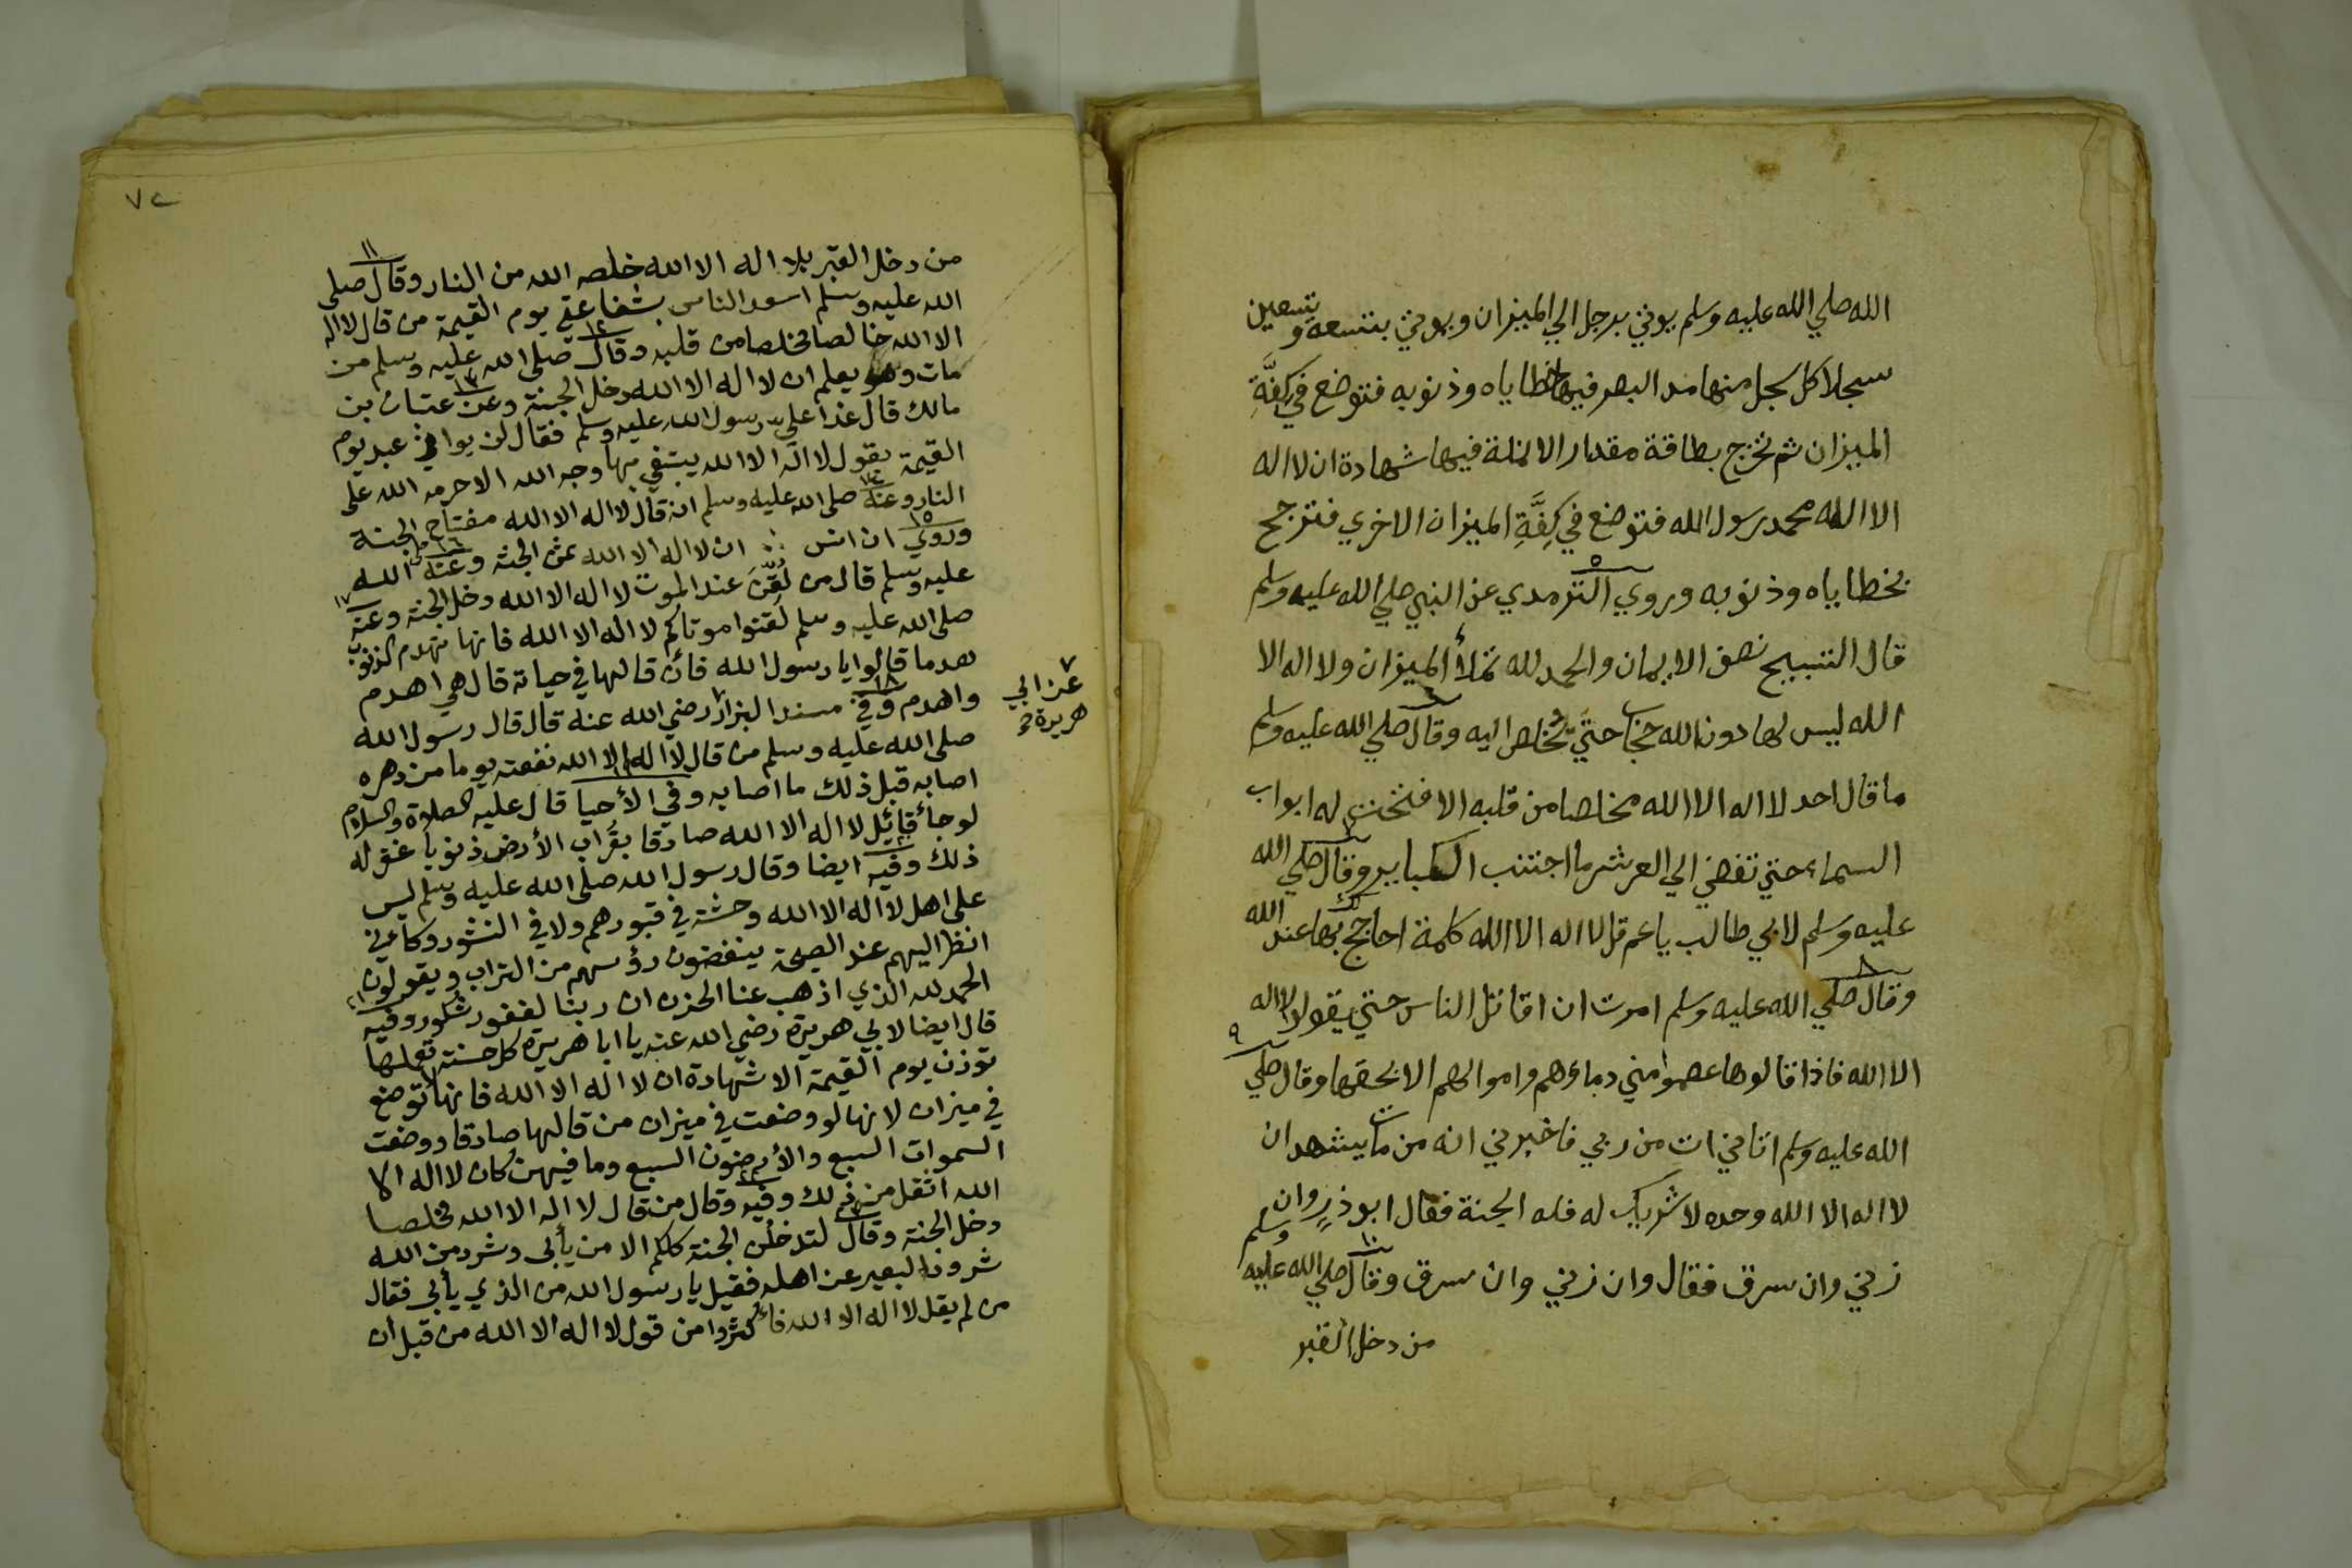 الله صلي الله عليه وسلم يوتي برجل الي الميزان ويوتي بتسعه وتسعين
سجلا كل سجل منها مد البصر فيها خطاياه وذنوبه فتوضع في كِفَّةِ
الميزان ثم تخرج بطاقة مقدار الانملة فيها شهادة ان لا اله
الا الله محمد رسول الله فتوضع في كِفَّةِ الميزان الاخري فترجح
بخطاياه وذنوبه وروي ٥ الترمدي عن النبي صلي الله عليه وسلم
قال التسبيح نصف الايمان والحمد لله تملأ الميزان ولا اله الا
الله ليس لها دون الله حجاب حتي تخلص اليه وقال ٦ صلي الله عليه وسلم
ما قال احد لا اله الا الله مخلصا من قلبه الا فتحت له ابواب
السماء حتي تفضي الي العرش ما اجتنب الكباير وقال ٧ صلي الله
عليه وسلم لابي طالب يا عم قل لا اله الا الله كلمة احاجج لك بها عند الله
وقال ٨ صلي الله عليه وسلم امرت ان اقاتل الناس حتي يقولوا لا اله
الا الله فاذا قالوها عصموا مني دماءهم واموالهم الا بحقها وقال ٩ صلي
الله عليه وسلم اتاني ات من ربي فاخبرني انه من مات يشهد ان
لا اله الا الله وحده لا شريك له فله الجنة فقال ابو ذرٍ وان
زني وان سرق فقال وان زني وان سرق وقال ١٠ صلي الله عليه وسلم
من دخل القبر
٧٢
من دخل القبر بلا اله الا الله خلصه الله من النار وقال ١١ صلى
الله عليه وسلم اسعد الناس بشفاعتي يوم القيمة من قال لا اله
الا الله خالصا مخلصا من قلبه وقال ١٢ صلى الله عليه وسلم من
مات وهو يعلم ان لا اله الا الله دخل الجنة وعن ١٣ عتبان بن
مالك قال غدا علي رسول الله عليه وسلم فقال لن يوافي عبد يوم
القيمة يقول لا اله الا الله يبتغي بها وجه الله الا حرمه الله على
النار وعنه ١٤ صلى الله عليه وسلم انه قال لا اله الا الله مفتاح الجنة
وروي ١٥ ان انس ان لا اله الا الله ثمن الجنة وعنه ١٦ صلى الله
عليه وسلم قال من لُقِّنَ عند الموت لا اله الا الله دخل الجنة وعنه ١٧
صلى الله عليه وسلم لقنوا موتاكم لا اله الا الله فانها تهدم الذنوب
هدما قالوا يا رسول الله فأن قالها في حياته قال هي اهدم
واهدم وفي ١٨ مسند البزار ٧ رضي الله عنه قال قال رسول الله
٧ عن ابي
هريرة
صلى الله عليه وسلم من قال لا اله الا الله نفعته يوما من دهره
اصابه قبل ذلك ما اصابه وفي ١٩ الأحيا قال عليه الصلاة والسلام
لو جأ قائِل لا اله الا الله صادقا بقُراب الأرض ذنوبا غفر له
ذلك وفيه ٢٠ ايضا وقال رسول الله صلى الله عليه وسلم ليس
على اهل لا اله الا الله وحشة في قبورهم ولا في النشور وكأني
انظر اليهم عند الصيحة ينفضون رؤسهم من التراب ويقولون
الحمد لله الذي اذهب عنا الحزن ان ربنا لغفور شكور وفيه ٢١
قال ايضا لابي هريرة رضي الله عنه يا ابا هريرة كل حسنة تعملها
توزن يوم القيمة الا شهادة ان لا اله الا الله فانها لا توضع
في ميزان لانها لو وضعت في ميزان من قالها صادقا ووضعت
السموات السبع والأرضون السبع وما فيهن كان لا اله الا
الله اثقل من ذلك وفيه ٢٢ وقال من قال لا اله الا الله مخلصا
دخل الجنة وقال ٢٣ لتدخلن الجنة كلكم الا من يأبى وشرد من الله
شرود البعير عن اهله فقيل يا رسول الله من الذي يأبى فقال
من لم يقل لا اله الا الله فأكثروا من قول لا اله الا الله من قبل ان